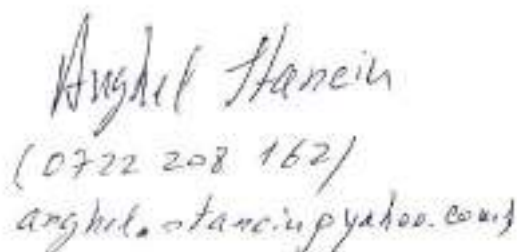 Anghel Stanciu
(0722 208 162)
anghel.stanciu@yahoo.com